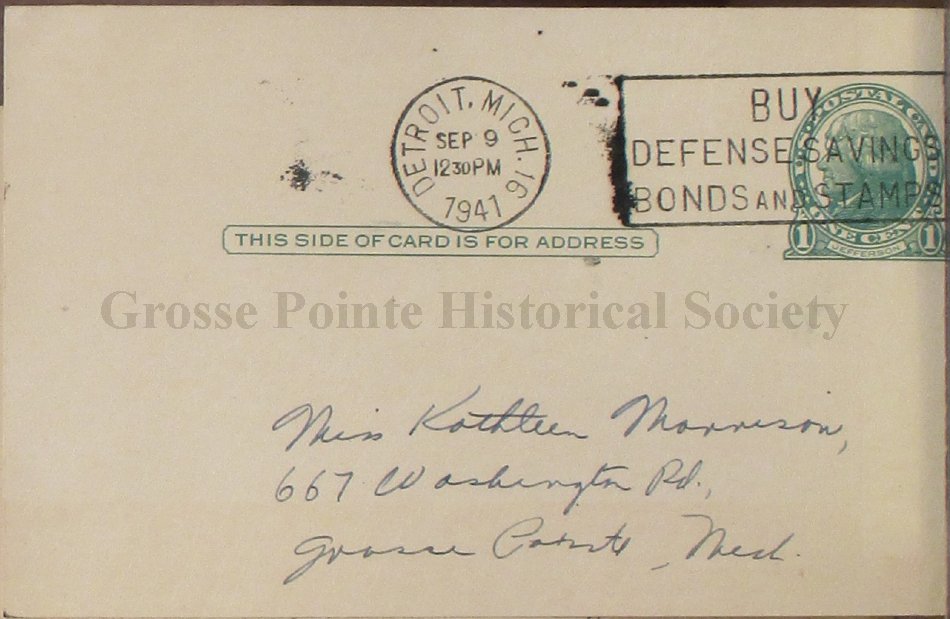 DETROIT, MICH. 16
SEP 9
12 30 PM
1941
BUY
DEFENSE SAVINGS
BONDS AND STAMPS
U.S. POSTAL CARD
ONE CENT
1 JEFFERSON 1
THIS SIDE OF CARD IS FOR ADDRESS
Grosse Pointe Historical Society
Miss Kathleen Morrison,
667 Washington Rd.,
Grosse Pointe, Mich.